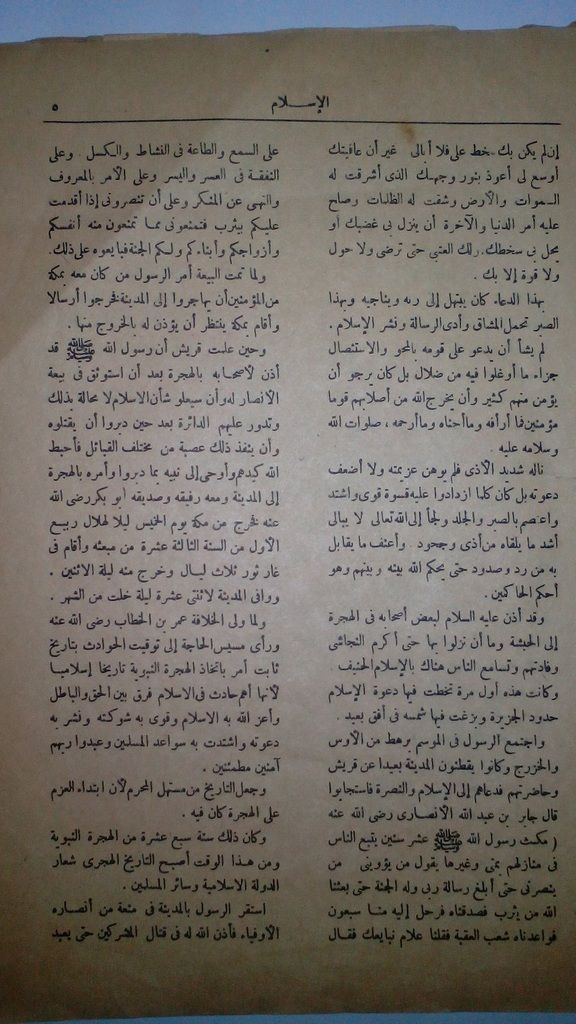 الإسلام
٥
إن لم يكن بك سخط على فلا أبالى غير أن عاقبتك
أوسع لى أعوذ بنور وجهك الذى أشرقت له
السموات والأرض وشقت له الظلمات وصلح
عليه أمر الدنيا والآخرة أن ينزل بى غضبك او
يحل بى سخطك. ولك العتبى حتى ترضى ولا حول
ولا قوة إلا بك .
بهذا الدعاء كان يبتهل إلى ربه ويناجيه وبهذا
الصبر تحمل المشاق وأدى الرسالة ونشر الإسلام .
لم يشأ أن يدعو على قومه بالمحو والاستئصال
جزاء ما أوغلوا فيه من ضلال بل كان يرجو أن
يؤمن منهم كثير وأن يخرج الله من أصلابهم قوما
مؤمنين فما أرأفه وما أحناه وما أرحمه ، صلوات الله
وسلامه عليه .
ناله شديد الأذى فلم يوهن عزيمته ولا أضعف
دعوته بل كان كلما ازدادوا عليه قسوة قوى واشتد
واعتصم بالصبر والجلد ولجأ إلى الله تعالى لا يبالى
أشد ما يلقاه من أذى وجحود . وأعنف ما يقابل
به من رد وصدود حتى يحكم الله بينه وبينهم وهو
أحكم الحاكمين .
وقد أذن عليه السلام لبعض أصحابه فى الهجرة
إلى الحبشة وما أن نزلوا بها حتى أكرم النجاشى
وفادتهم وتسامع الناس هناك بالإسلام الحنيف .
وكانت هذه أول مرة تخطت فيها دعوة الإسلام
حدود الجزيرة وبزغت فيها شمسه فى أفق بعيد .
واجتمع الرسول فى الموسم برهط من الأوس
والخزرج وكانوا يقطنون المدينة بعيدا عن قريش
وحاضرتهم فدعاهم إلى الإسلام والنصرة فاستجابوا
قال جابر بن عبد الله الأنصارى رضى الله عنه
( مكث رسول الله ﷺ عشر سنين يتبع الناس
فى منازلهم بمنى وغيرها يقول من يؤوينى من
ينصرنى حتى أبلغ رسالة ربى وله الجنة حتى بعثنا
الله من يثرب فصدقناه فرحل إليه منا سبعون
فواعدناه شعب العقبة فقلنا علام نبايعك فقال
على السمع والطاعة فى النشاط والكسل . وعلى
النفقة فى العسر واليسر وعلى الأمر بالمعروف
والنهى عن المنكر وعلى أن تنصرونى إذا أقدمت
عليكم بيثرب فتمنعونى مما تمنعون منه أنفسكم
وأزواجكم وأبناءكم ولكم الجنة فبايعوه على ذلك.
ولما تمت البيعة أمر الرسول من كان معه بمكة
من المؤمنين أن يهاجروا إلى المدينة فخرجوا أرسالا
وأقام بمكة ينتظر أن يؤذن له بالخروج منها .
وحين علمت قريش أن رسول الله ﷺ قد
أذن لأصحابه بالهجرة بعد أن استوثق فى بيعة
الأنصار له وأن سيعلو شأن الاسلام لا محالة بذلك
وتدور عليهم الدائرة بعد حين دبروا أن يقتلوه
وأن ينفذ ذلك عصبة من مختلف القبائل فأحبط
الله كيدهم وأوحى إلى نبيه بما دبروا وأمره بالهجرة
إلى المدينة ومعه رفيقه وصديقه أبو بكر رضى الله
عنه فخرج من مكة يوم الخميس ليلا لهلال ربيع
الأول من السنة الثالثة عشرة من مبعثه وأقام فى
غار ثور ثلاث ليال وخرج منه ليلة الاثنين .
ووافى المدينة لاثنتى عشرة ليلة خلت من الشهر .
ولما ولى الخلافة عمر بن الخطاب رضى الله عنه
ورأى مسيس الحاجة إلى توقيت الحوادث بتاريخ
ثابت أمر باتخاذ الهجرة النبوية تاريخا إسلاميا
لأنها أهم حادث فى الاسلام فرق بين الحق والباطل
وأعز الله به الاسلام وقوى به شوكته ونشر به
دعوته واشتدت به سواعد المسلمين وعبدوا ربهم
آمنين مطمئنين .
وجعل التاريخ من مستهل المحرم لأن ابتداء العزم
على الهجرة كان فيه .
وكان ذلك سنة سبع عشرة من الهجرة النبوية
ومن هذا الوقت أصبح التاريخ الهجرى شعار
الدولة الاسلامية وسائر المسلمين .
استقر الرسول بالمدينة فى منعة من أنصاره
الأوفياء فأذن الله له فى قتال المشركين حتى يعبد